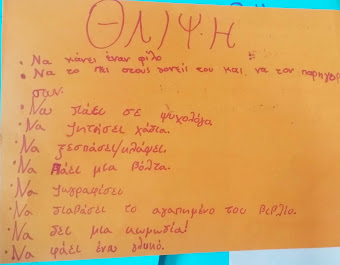 ΘΛΙΨΗ
• Να κάνει έναν φίλο
• Να το πει στους γονείς του και να τον παρηγορή
σουν.
• Να πάει σε ψυχολόγο
• Να ζητήσει χάδια.
• Να ξεσπάσει/κλάψει.
• Να πάει μια βόλτα.
• Να ζωγραφίσει
• Να διαβάσει το αγαπημένο του βιβλίο.
• Να δει μια κωμωδία!
• Να φάει ένα γλυκό.